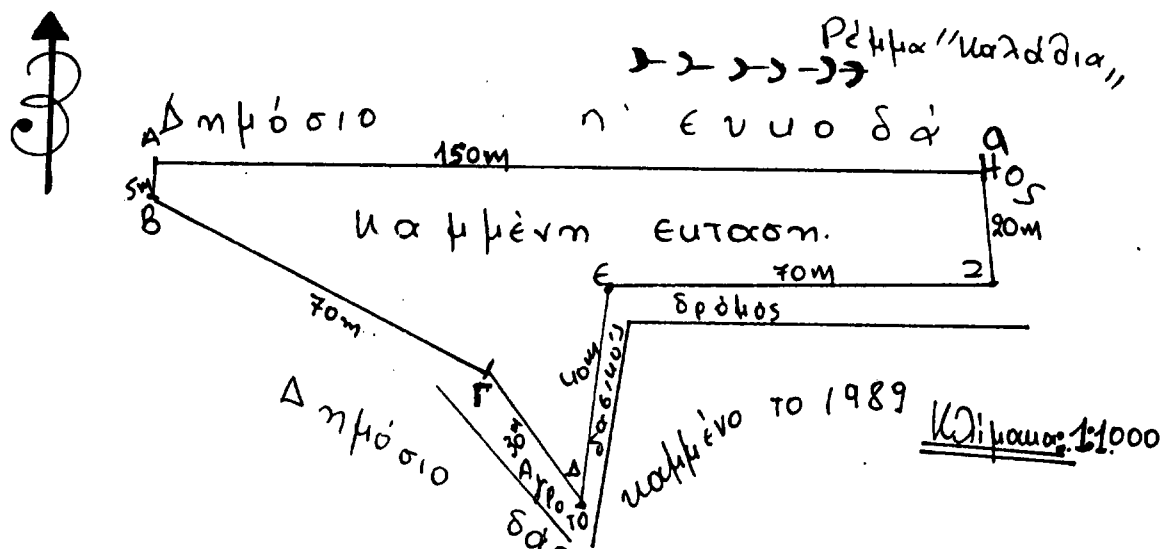 Ρέμμα "Καλάθια"
Δημόσιο πευκοδά
α
Α
150m
Η Ο S
5m
Β
Καμμένη έκταση.
20m
Ε
70m
Ζ
δρόμος
70m
40m
δασικός
Γ
30m
Δ
Αγρο
το
Δημόσιο
δά
καμμένο το 1989
Κλίμακα: 1:1000